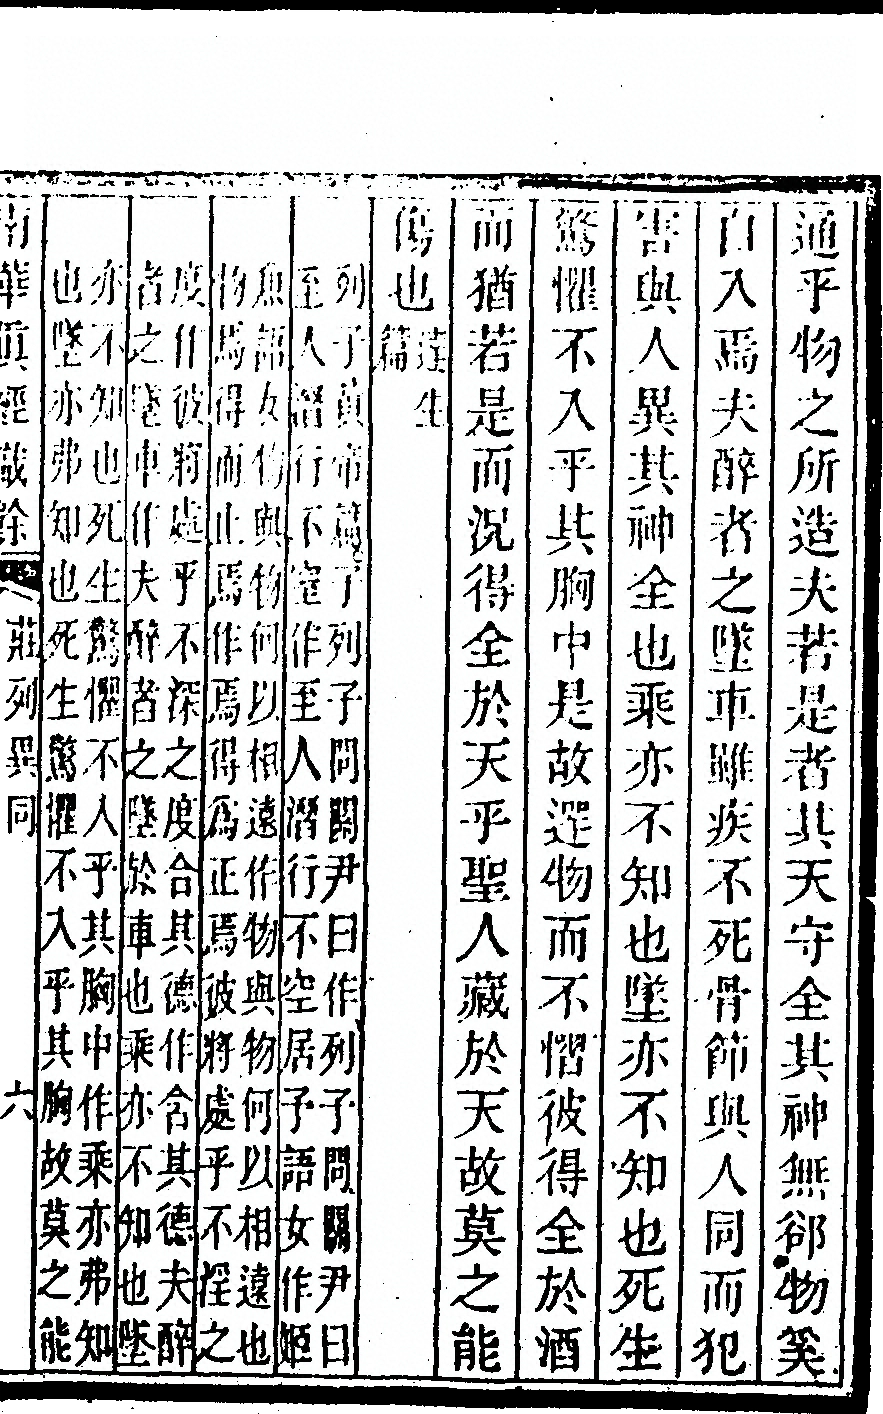 通乎物之所造夫若是者其天守全其神無郤物奚
自入焉夫醉者之墜車雖疾不死骨節與人同而犯
害與人異其神全也乘亦不知也墜亦不知也死生
驚懼不入乎其胸中是故遻物而不慴彼得全於酒
而猶若是而況得全於天乎聖人藏於天故莫之能
傷也達生篇
列子黃帝篇子列子問關尹曰作列子問關尹曰
至人潛行不窒作至人潛行不空居予語女作姬
魚語女物與物何以相遠作物與物何以相遠也
物焉得而止焉作焉得爲正焉彼將處乎不淫之
度作彼將處乎不深之度合其德作含其德夫醉
者之墜車作夫醉者之墜於車也乘亦不知也墜
亦不知也死生驚懼不入乎其胸中作乘亦弗知
也墜亦弗知也死生驚懼不入乎其胸故莫之能
南華眞經識餘 莊列異同 六